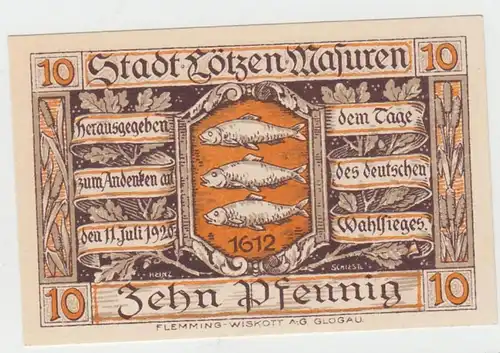 10 Stadt Lötzen Masuren 10
herausgegeben
zum Andenken an
den 11. Juli 1920
dem Tage
des deutschen
Wahlsieges.
1612
HEINZ SCHIESTL
10 Zehn Pfennig 10
FLEMMING-WISKOTT A.G. GLOGAU